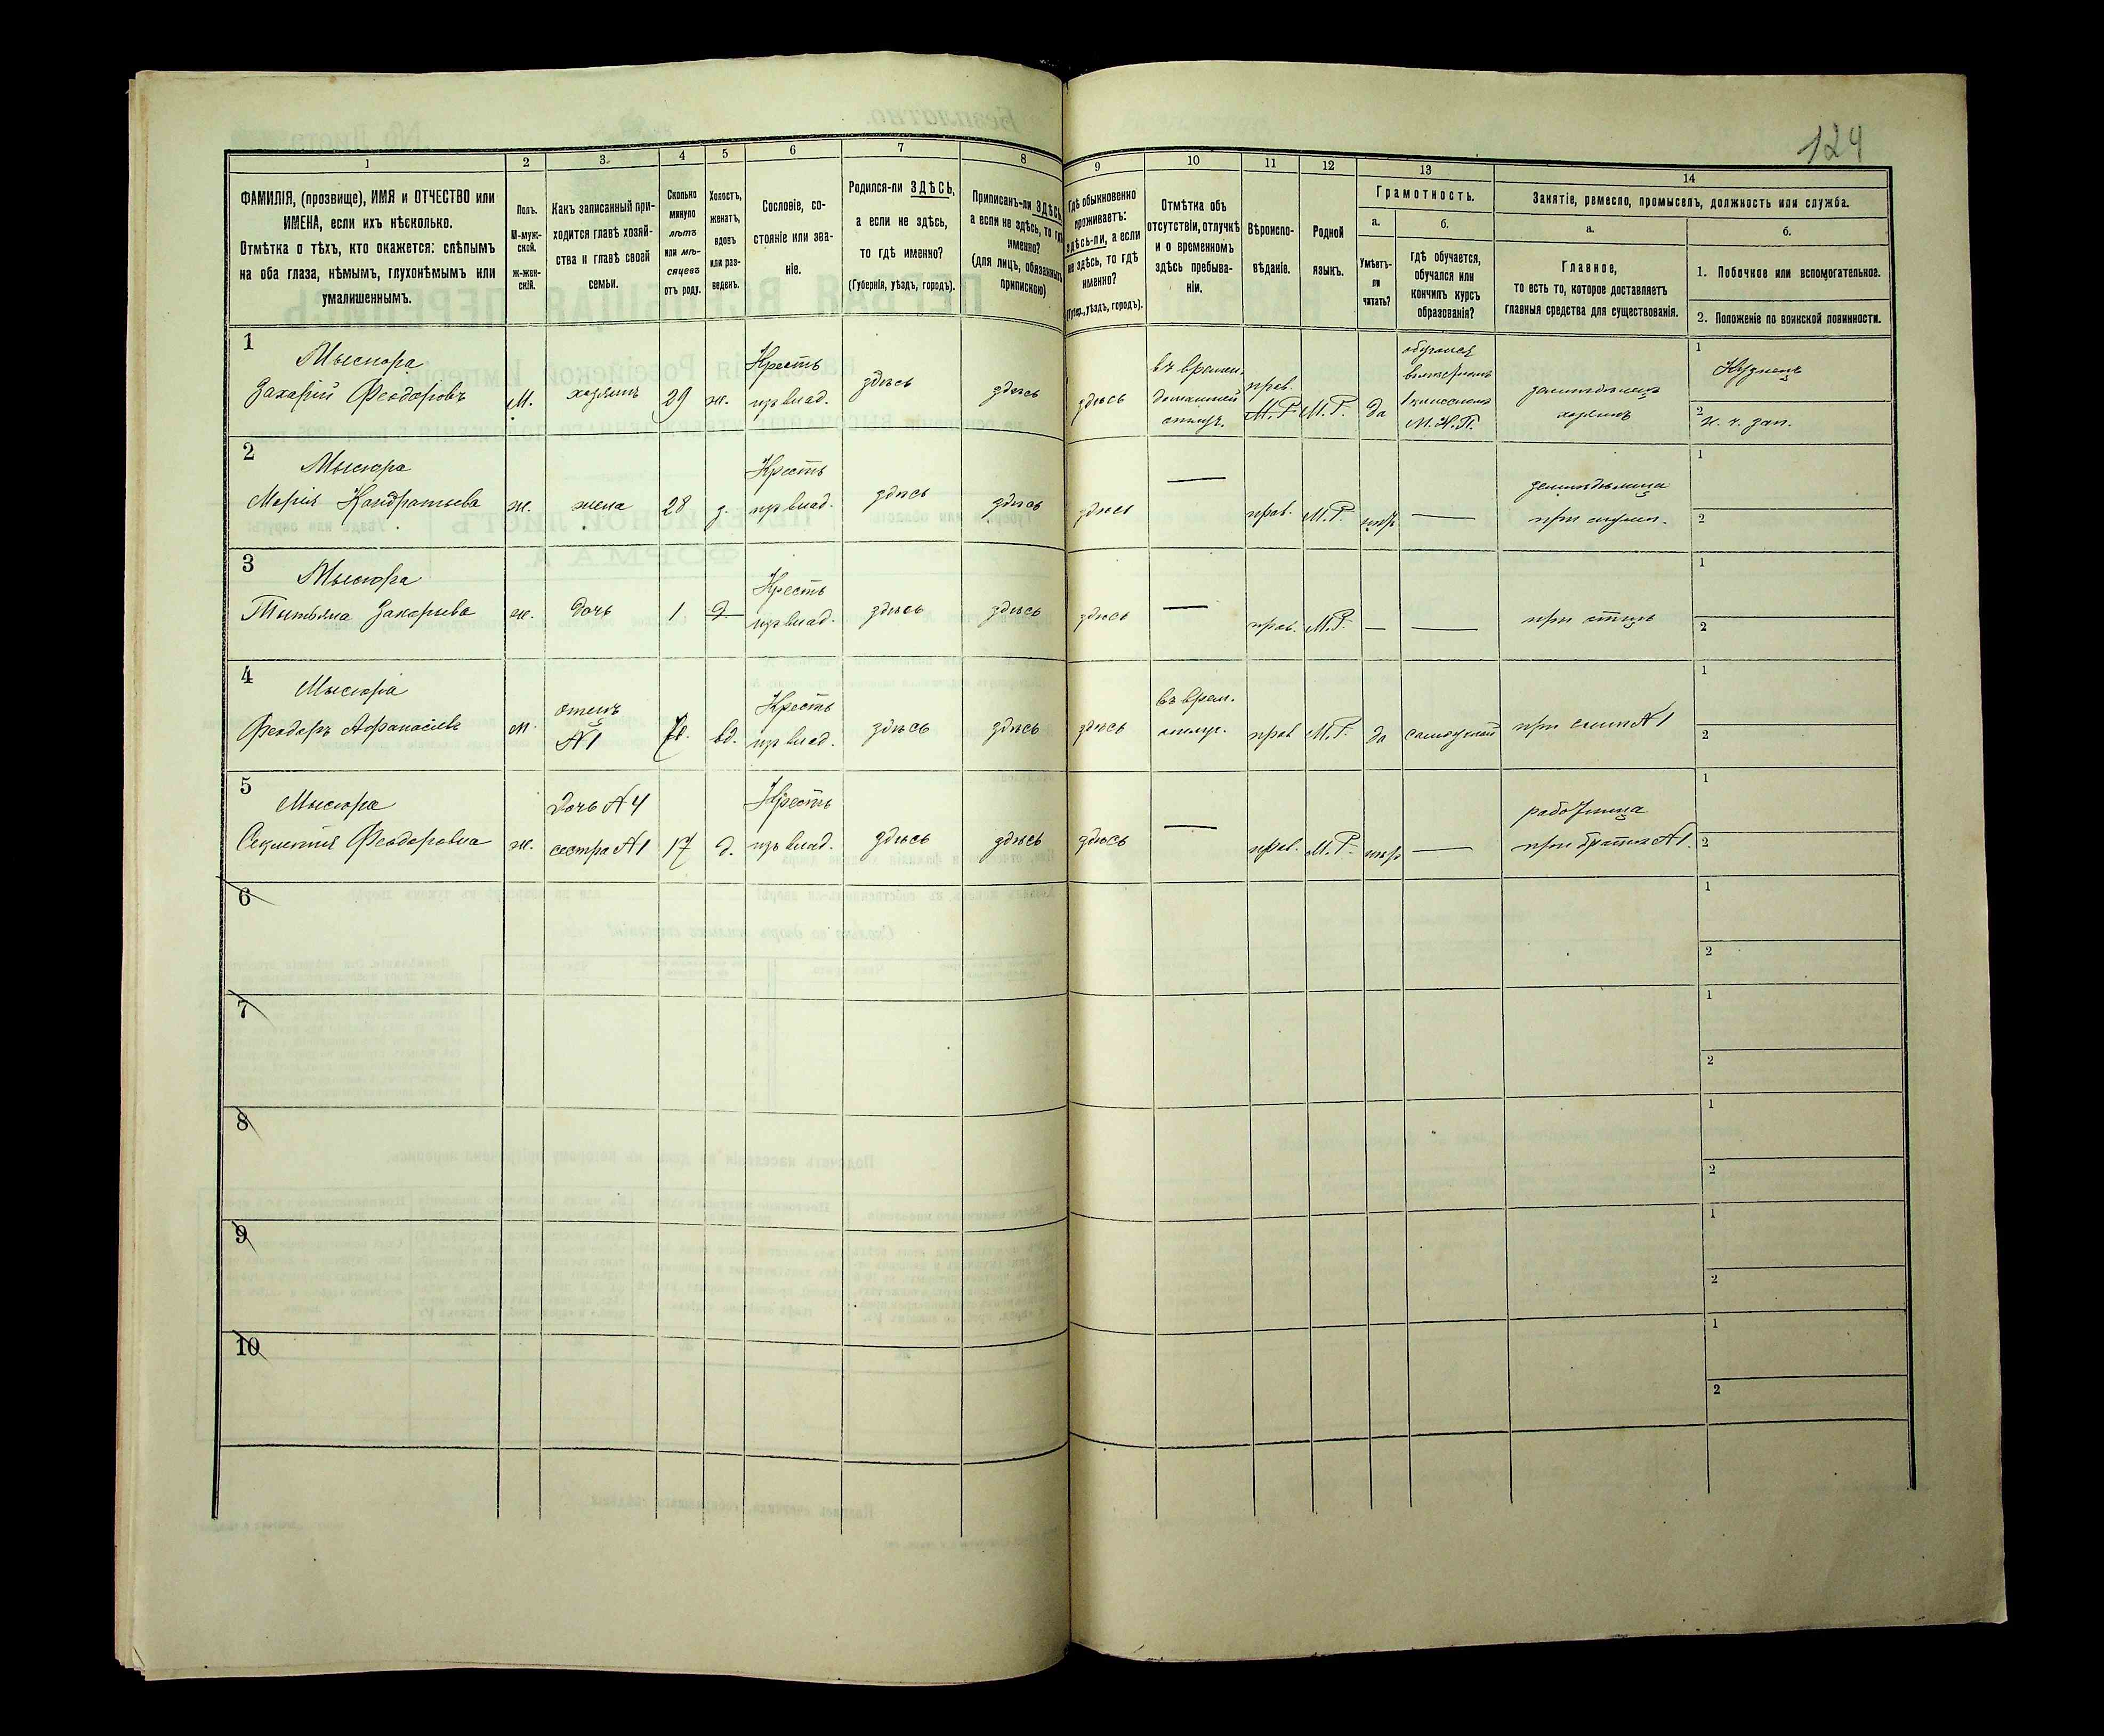 124
1
2
3.
4
5
6
7
8
9
10
11
12
13
14
ФАМИЛІЯ, (прозвище), ИМЯ и ОТЧЕСТВО или
ИМЕНА, если ихъ нѣсколько.
Отмѣтка о тѣхъ, кто окажется: слѣпымъ
на оба глаза, нѣмымъ, глухонѣмымъ или
умалишеннымъ.
Полъ.
М-муж-
ской.
ж-жен-
скій.
Какъ записанный при-
ходится главѣ хозяй-
ства и главѣ своей
семьи.
Сколько
минуло
лѣтъ
или мѣ-
сяцевъ
отъ роду.
Холостъ,
женатъ,
вдовъ
или раз-
веденъ.
Сословіе, со-
стояніе или зва-
ніе.
Родился-ли ЗДѢСЬ,
а если не здѣсь,
то гдѣ именно?
(Губернія, уѣздъ, городъ).
Приписанъ-ли ЗДѢСЬ,
а если не здѣсь, то гдѣ
именно?
(для лицъ, обязанныхъ
припискою)
Гдѣ обыкновенно
проживаетъ:
здѣсь-ли, а если
не здѣсь, то гдѣ
именно?
(Губер., уѣздъ, городъ).
Отмѣтка объ
отсутствіи, отлучкѣ
и о временномъ
здѣсь пребыва-
ніи.
Вѣроиспо-
вѣданіе.
Родной
языкъ.
Грамотность.
а.
Умѣетъ-
ли
читать?
б.
гдѣ обучается,
обучался или
кончилъ курсъ
образованія?
Занятіе, ремесло, промыселъ, должность или служба.
а.
Главное,
то есть то, которое доставляетъ
главныя средства для существованія.
б.
1. Побочное или вспомогательное.
2. Положеніе по воинской повинности.
1
Мысюра
Захарій Феодоровъ
М.
хозяинъ
29
ж.
Кресть
изъ влад.
здѣсь
здѣсь
здѣсь
въ времен.
домашней
отлуч.
прав.
М.Р.
М.Р.
да
обучался
1 классномъ
М.Н.П.
хозяинъ
1
Кузнецъ
2
2
Мысюра
Марія Кондратьева
ж.
жена
28
Кресть
изъ влад.
здѣсь
здѣсь
здѣсь
—
прав.
М.Р.
—
1
2
3
Мысюра
Татьяна Захарьева
ж.
дочь
1
Кресть
изъ влад.
здѣсь
здѣсь
здѣсь
—
прав.
М.Р.
—
—
при отцѣ
1
2
4
Мысюра
Феодоръ Афанасіевъ
м.
отецъ
№ 1
вд.
Кресть
изъ влад.
здѣсь
здѣсь
здѣсь
въ врем.
отлуч.
прав
М.Р.
да
при сынѣ № 1
1
2
5
Мысюра
Секлетія Феодоровна
ж.
дочь № 4
сестра № 1
17
д.
Кресть
изъ влад.
здѣсь
здѣсь
здѣсь
—
прав.
М.Р.
—
работница
при братѣ № 1.
1
2
6
1
2
7
1
2
8
1
2
9
1
2
10
1
2